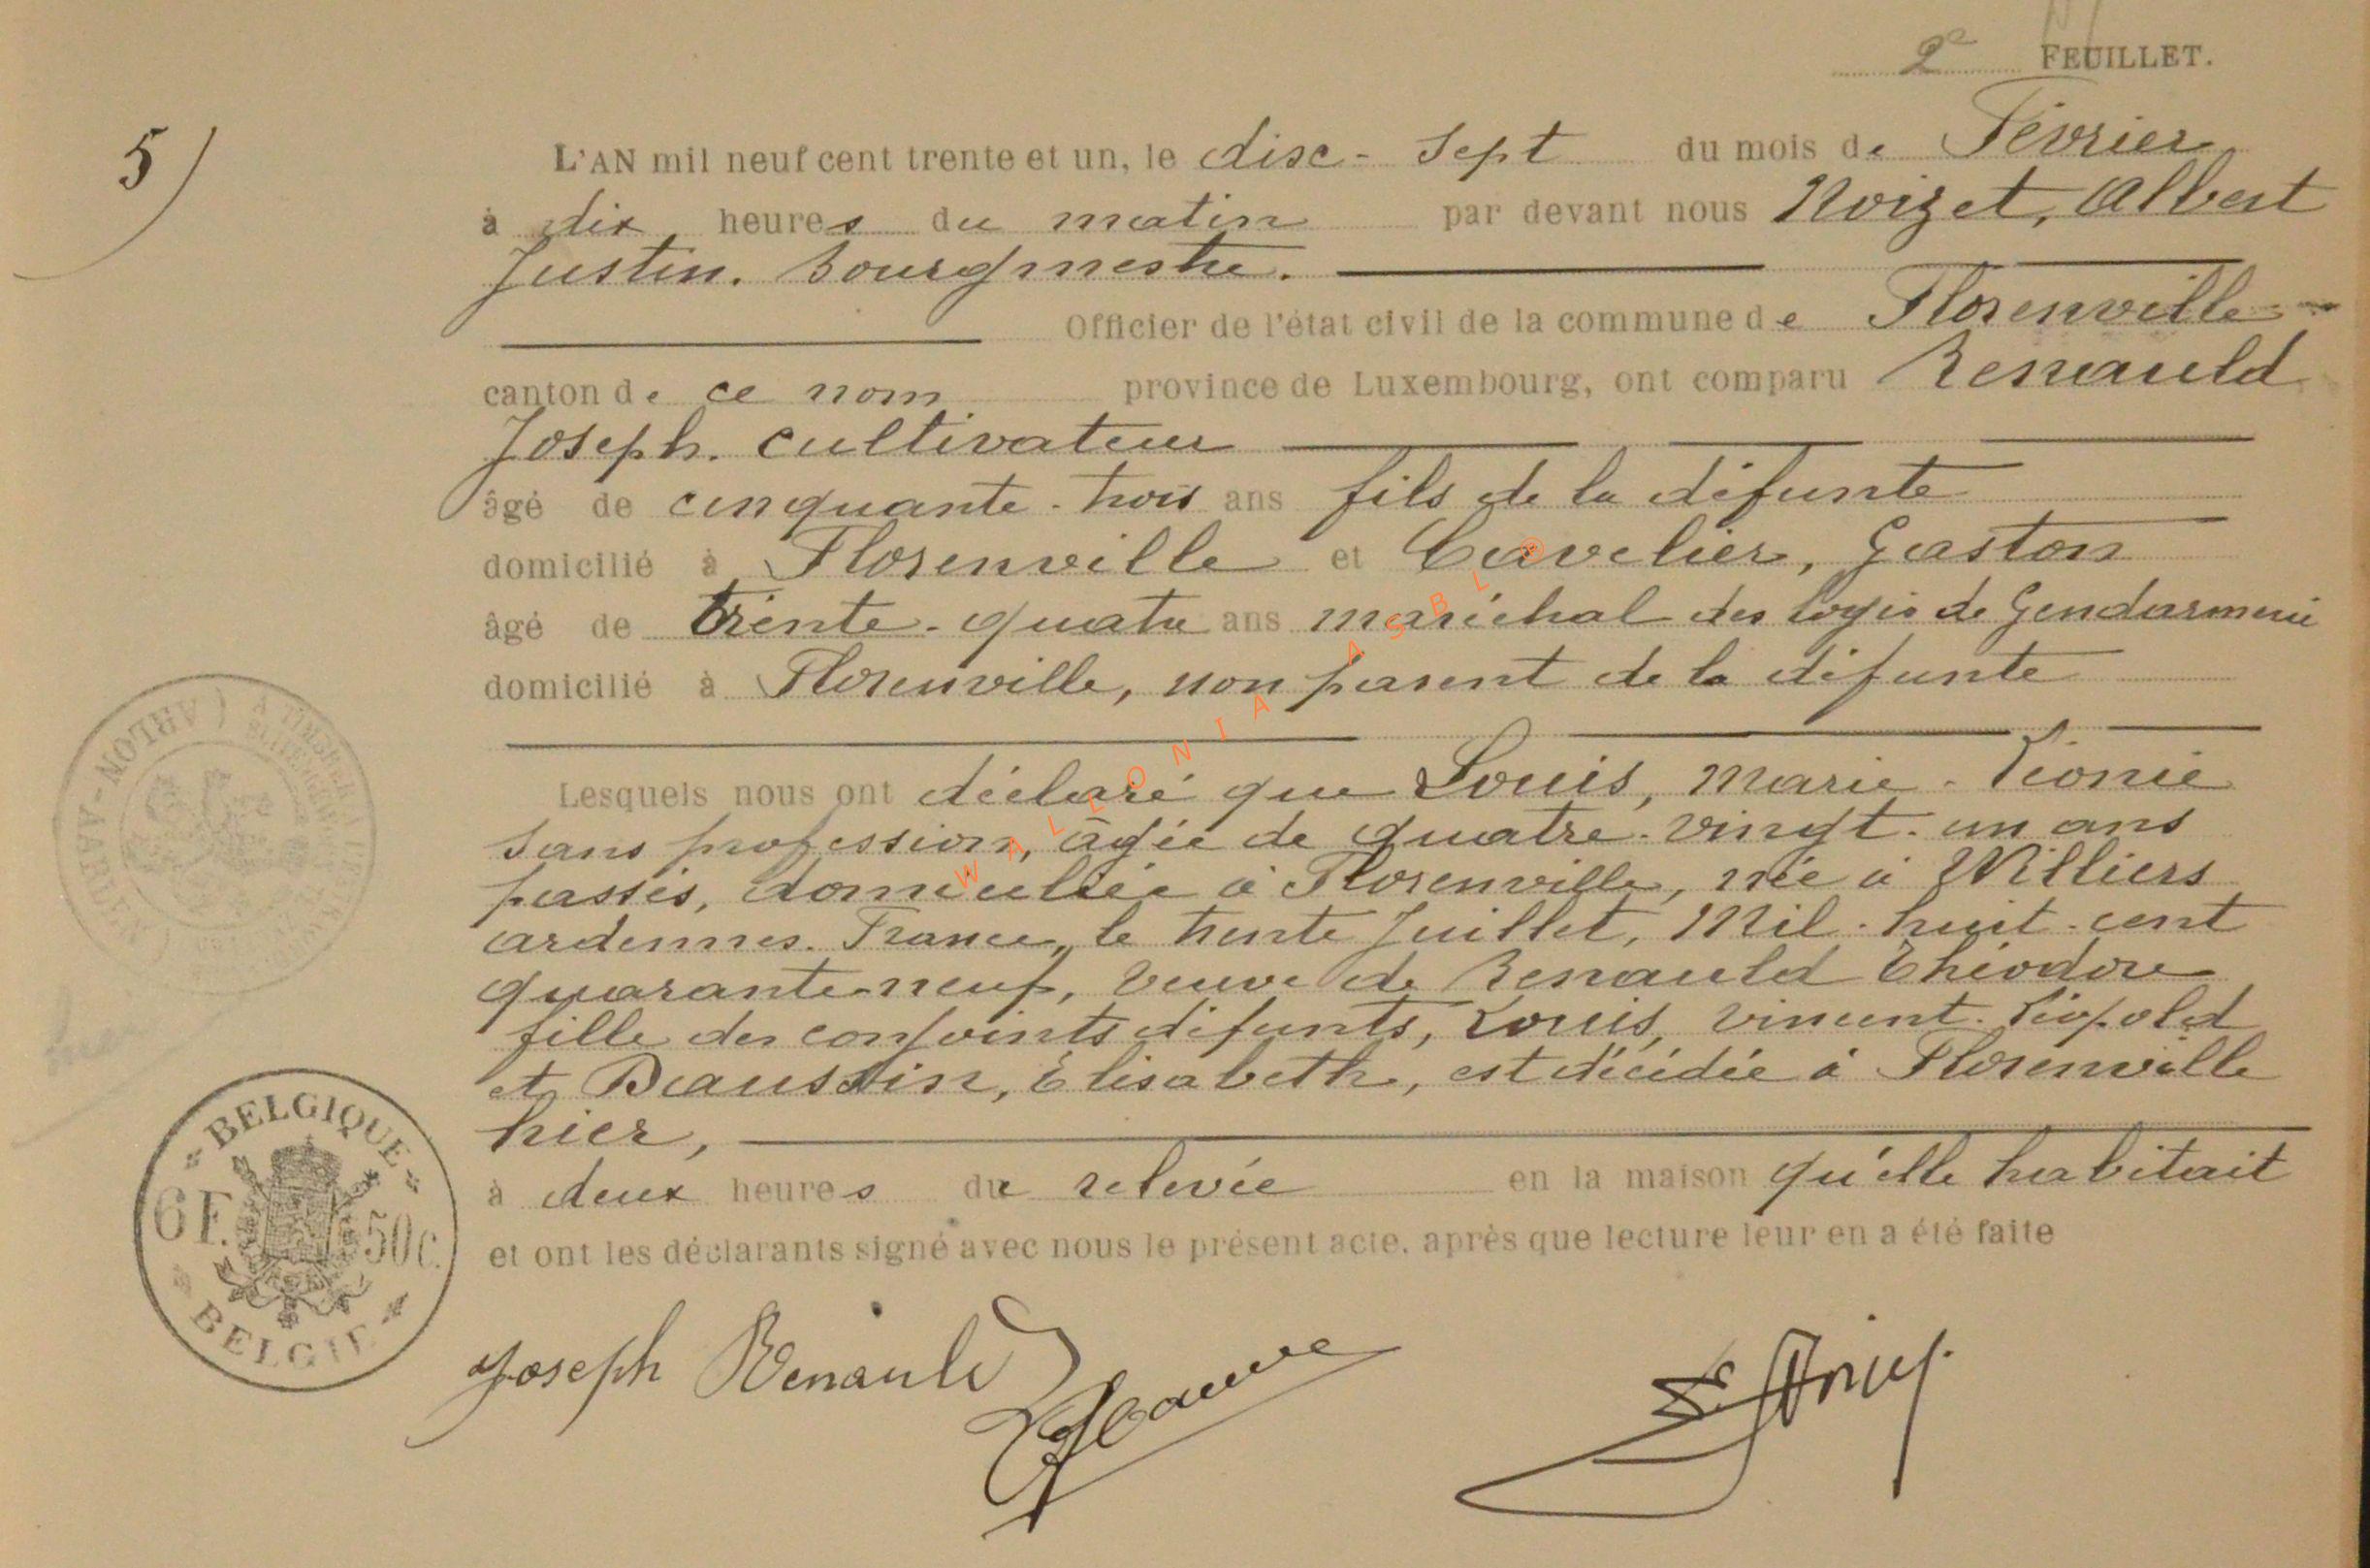 2e FEUILLET.
5)
L'AN mil neuf cent trente et un, le disc-sept du mois de Février
à dix heures du matin par devant nous Noizet, Albert
Justin. Bourgmestre.
Officier de l'état civil de la commune de Florenville
canton de ce nom province de Luxembourg, ont comparu Renauld
Joseph. cultivateur
âgé de cinquante-trois ans fils de la défunte
domicilié à Florenville et Cavelier, Gaston
âgé de trente-quatre ans maréchal des logis de Gendarmerie
domicilié à Florenville, non parent de la défunte
Lesquels nous ont déclaré que Louis, Marie-Léonie
sans profession, âgée de quatre-vingt-un ans
passés, domiciliée à Florenville, née à Williers
ardennes. France, le trente Juillet, Mil-huit-cent
quarante-neuf, veuve de Renauld Théodore
fille des conjoints défunts, Louis, Vincent-Léopold
et Elisabeth, est décédée à Florenville
hier,
à deux heures du relevée en la maison qu'elle habitait
et ont les déclarants signé avec nous le présent acte, après que lecture leur en a été faite
Joseph Renauld
BELGIQUE
6F. 50c.
BELGIE
WALLONIA ASBL ®